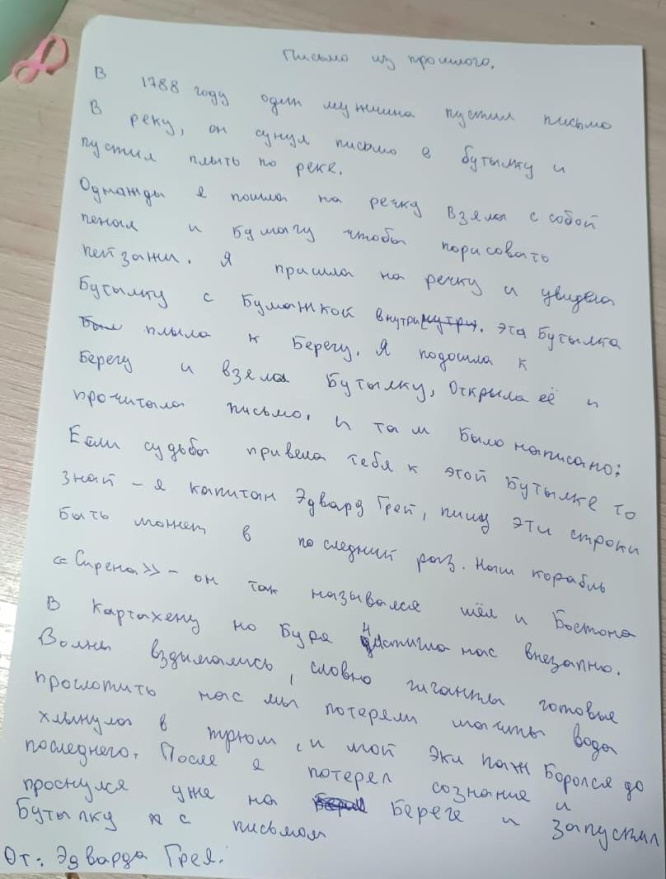 Письмо из прошлого.
В 1788 году один мужчина пустил письмо
В реку, он сунул письмо в бутылку и
пустил плыть по реке.
Однажды я пошла на речку взяла с собой
пенал и бумагу чтобы порисовать
пейзажи. Я пришла на речку и увидела
Бутылку с Бумажкой внутри. эта Бутылка
плыла к Берегу. Я подошла к
Берегу и взяла Бутылку, Открыла её и
прочитала письмо. и там Было написано:
Если судьба привела тебя к этой Бутылке то
знай - я капитан Эдвард Грей, пишу эти строки
быть может в последний раз. Наш корабль
«Сирена» - он так назывался шёл и Бостона
В Картахену но Буря настигла нас внезапно.
Волны вздымались, словно гиганты готовые
проглотить нас мы потеряли мачты вода
хлынула в трюм, и мой Экипаж Боролся до
последнего. После я потерял сознание и
проснулся уже на Береге и запустил
Бутылку с письмом
От: Эдварда Грея.